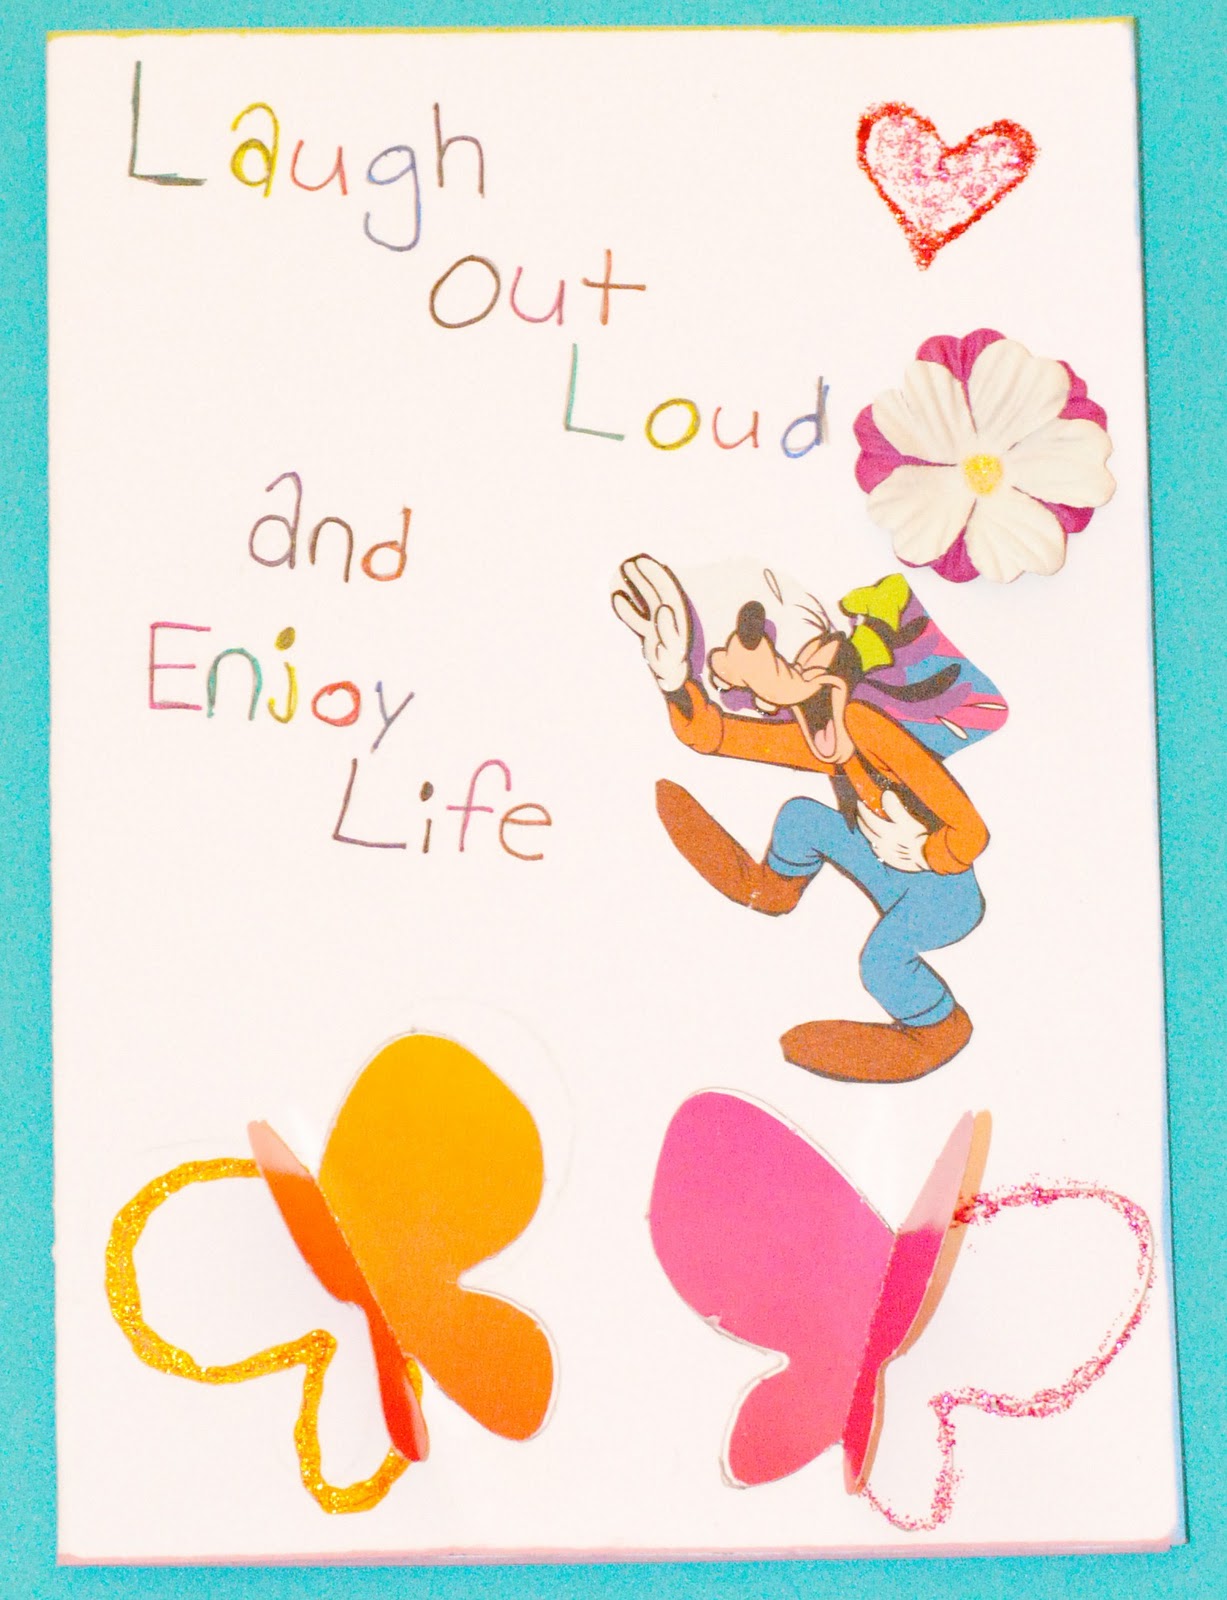 Laugh
out
Loud
and
Enjoy
Life